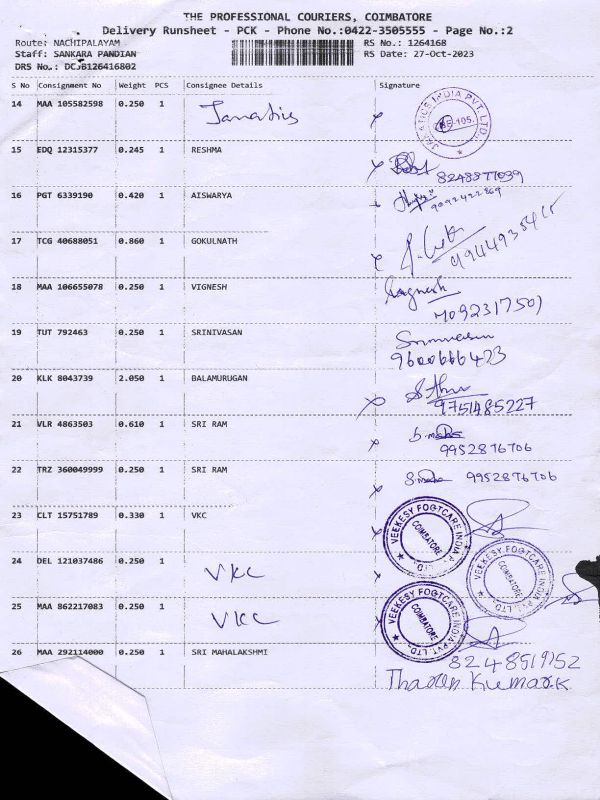 THE PROFESSIONAL COURIERS, COIMBATORE
Delivery Runsheet - PCK - Phone No.:0422-3505555 - Page No.:2
Route: NACHIPALAYAM RS No.: 1264168
Staff: SANKARA PANDIAN RS Date: 27-Oct-2023
DRS No.: DCJB126416802
S No Consignment No Weight PCS Consignee Details Signature
14 MAA 105582598 0.250 1
INDIA PVT. LTD.
15 EDQ 12315377 0.245 1 RESHMA
8248877039
16 PGT 6339190 0.420 1 AISWARYA
9092422869
17 TCG 40688051 0.860 1 GOKULNATH
18 MAA 106655078 0.250 1 VIGNESH
Vagnesh
7092317501
19 TUT 792463 0.250 1 SRINIVASAN
Srinivasan
9600666423
20 KLK 8043739 2.050 1 BALAMURUGAN
9751485227
21 VLR 4863503 0.610 1 SRI RAM
9952876706
22 TRZ 360049999 0.250 1 SRI RAM
9952876706
23 CLT 15751789 0.330 1 VKC
VEEKESY FOOTCARE INDIA PVT. LTD.
COIMBATORE
24 DEL 121037486 0.250 1 VKC
VEEKESY FOOTCARE INDIA PVT. LTD.
COIMBATORE
25 MAA 862217083 0.250 1 VKC
VEEKESY FOOTCARE INDIA PVT. LTD.
COIMBATORE
26 MAA 292114000 0.250 1 SRI MAHALAKSHMI
Tharun Kumar.K